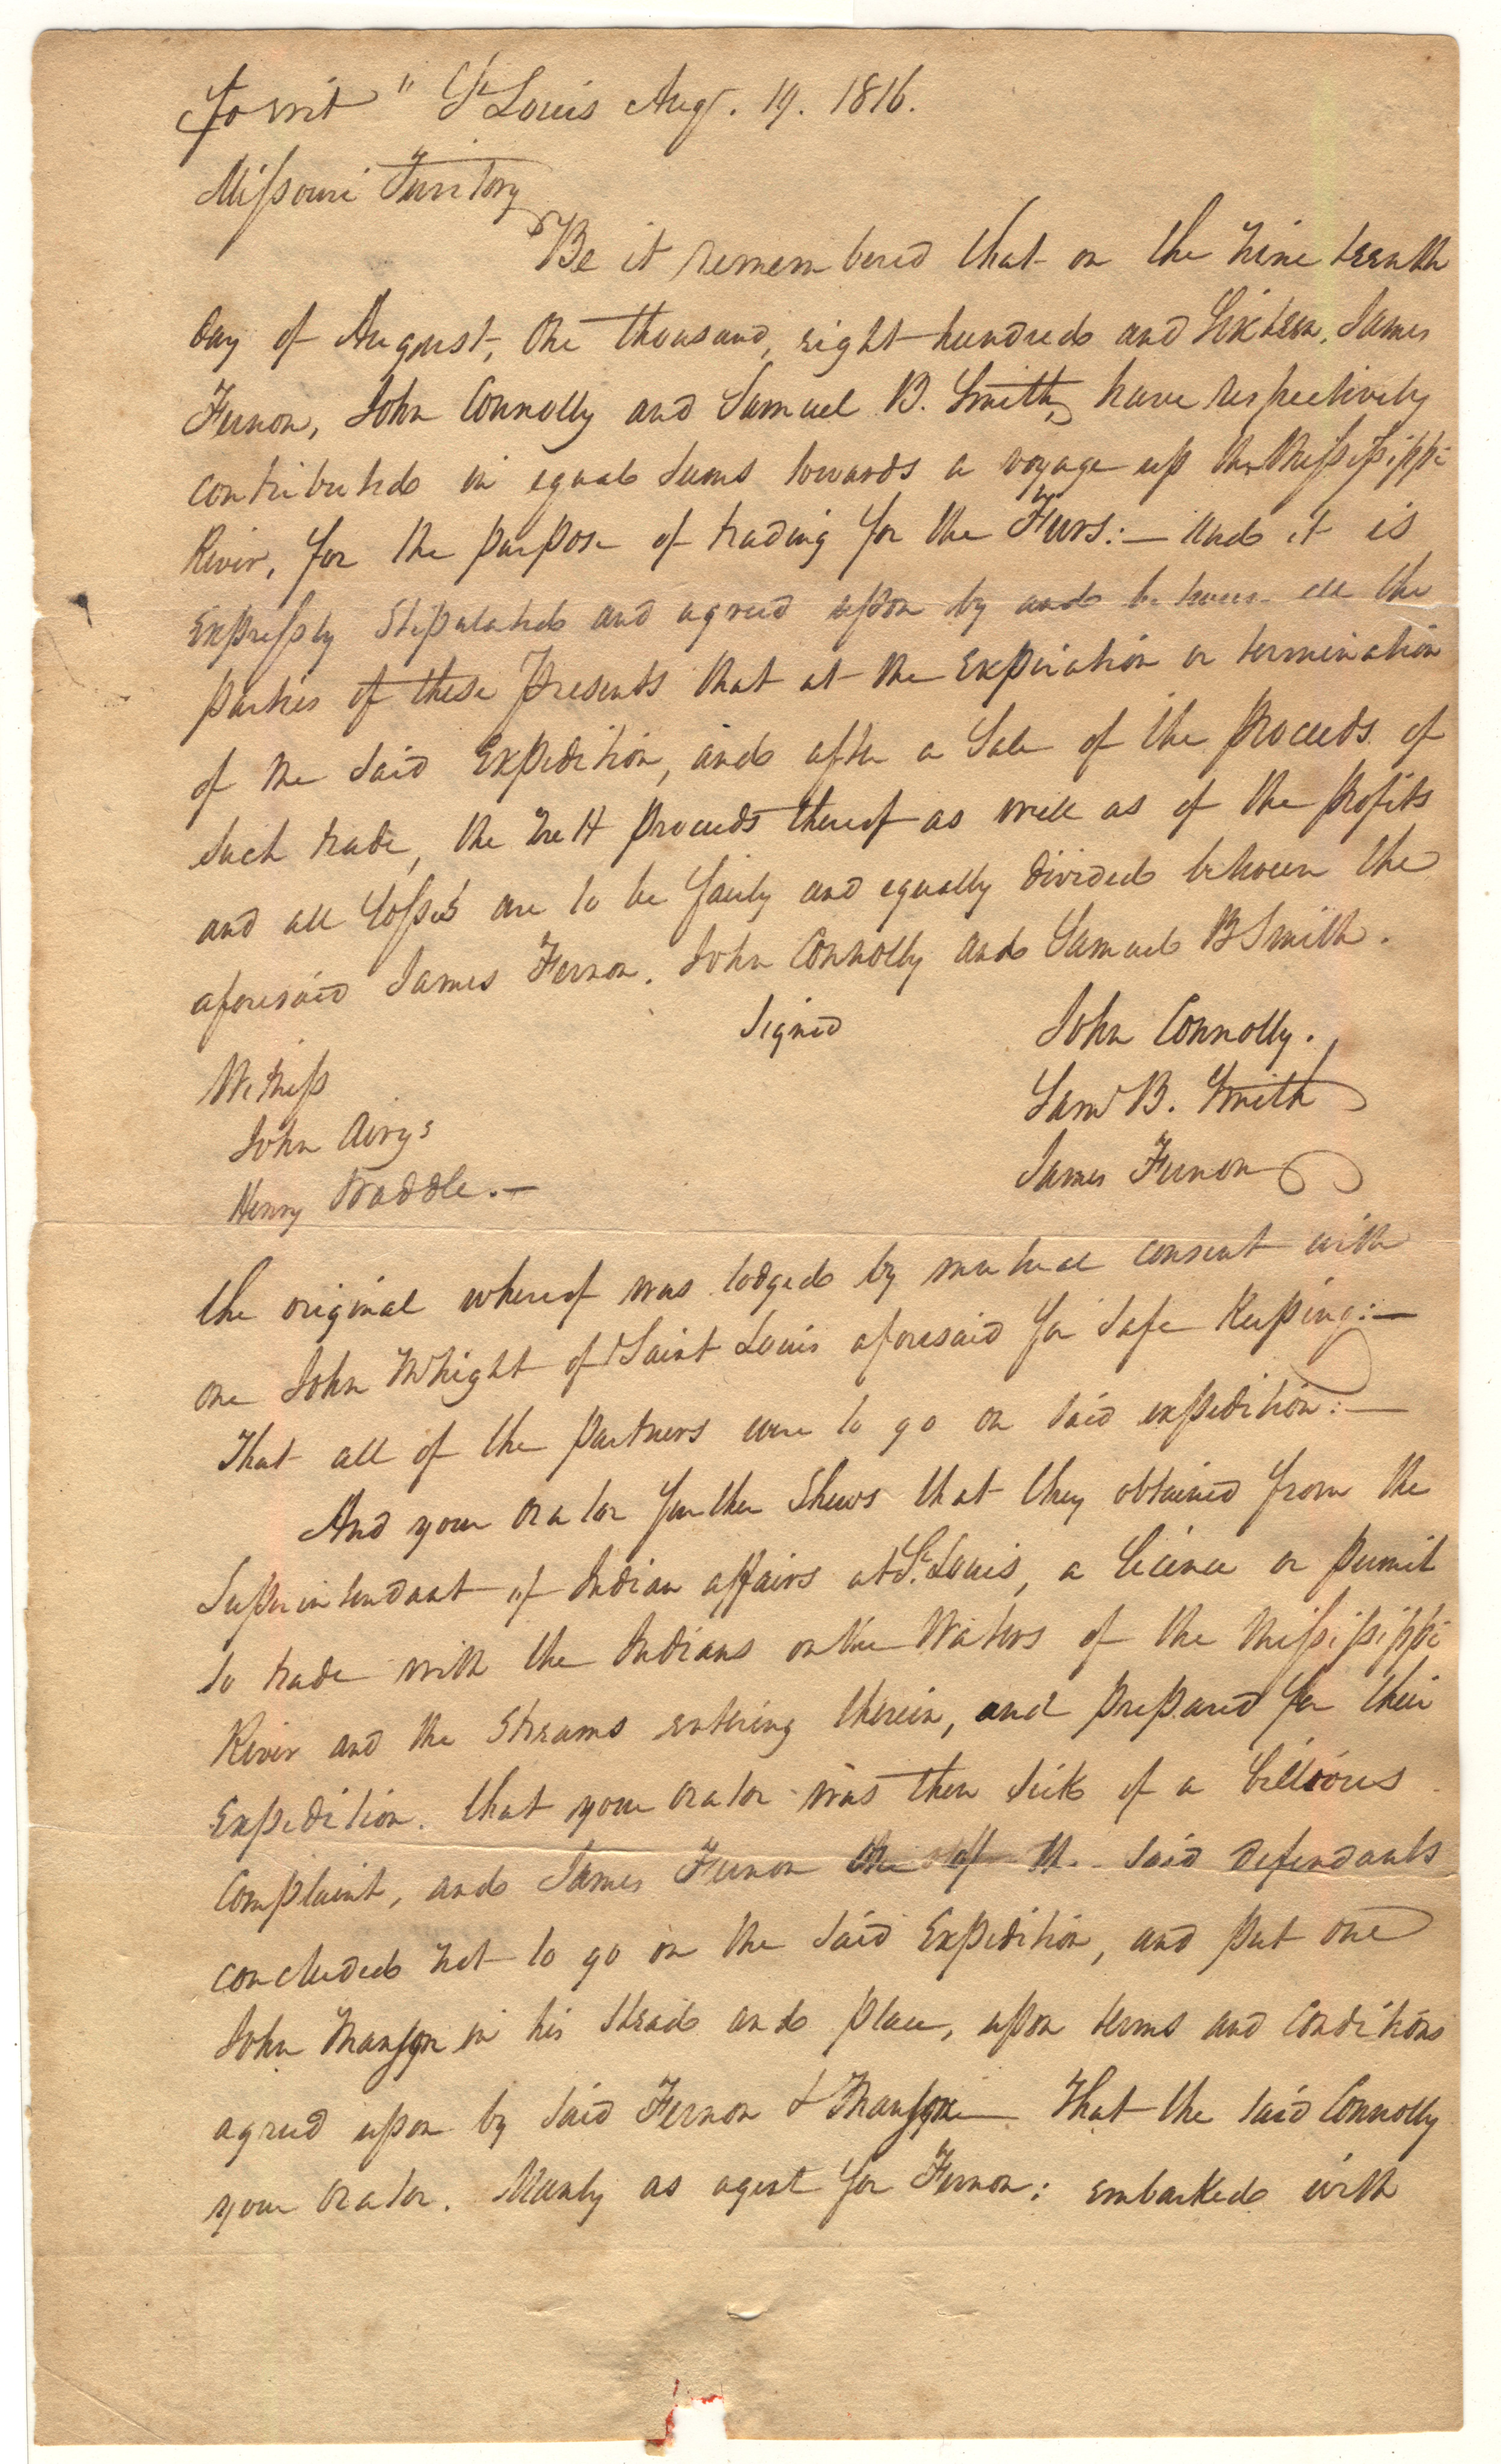 To wit " St Louis Augt. 19. 1816.
Missouri Territory
Be it remembered that on the Nineteenth
day of August, One thousand, eight hundred and Sixteen, James
Fernon, John Connolly and Samuel B. Smith, have respectively
contributed in equal sums towards a voyage up the Missisippi
River, for the purpose of trading for the Furs:— And it is
Expressly Stipulated and agreed upon by and between all the
parties of these Presents that at the Expiration or termination
of the said Expedition, and after a Sale of the proceeds of
such trade, the Nett proceeds thereof as well as of the profits
and all Losses are to be fairly and equally divided between the
aforesaid James Fernon. John Connolly and Samuel B Smith.
Signed John Connolly.
Witness Saml B. Smith
John
Henry James Fernon
the original whereof was lodged by mutual consent with
one John Whright of Saint Louis aforesaid for safe Keeping:—
That all of the partners were to go on said expedition:—
And your orator further Shews that they obtained from the
Superintendant of Indian affairs at St. Louis, a licence or permit
to trade with the Indians on the Waters of the Missisippi
River and the Streams entering therein, and prepared for their
Expedition. that your orator was then sick of a billious
Complaint, and James Fernon one of the said defendants
concluded not to go on the said Expedition, and put one
John in his stead and place, upon terms and conditions
agreed upon by said Fernon & That the said Connolly
your orator. as agent for Fernon: embarked with